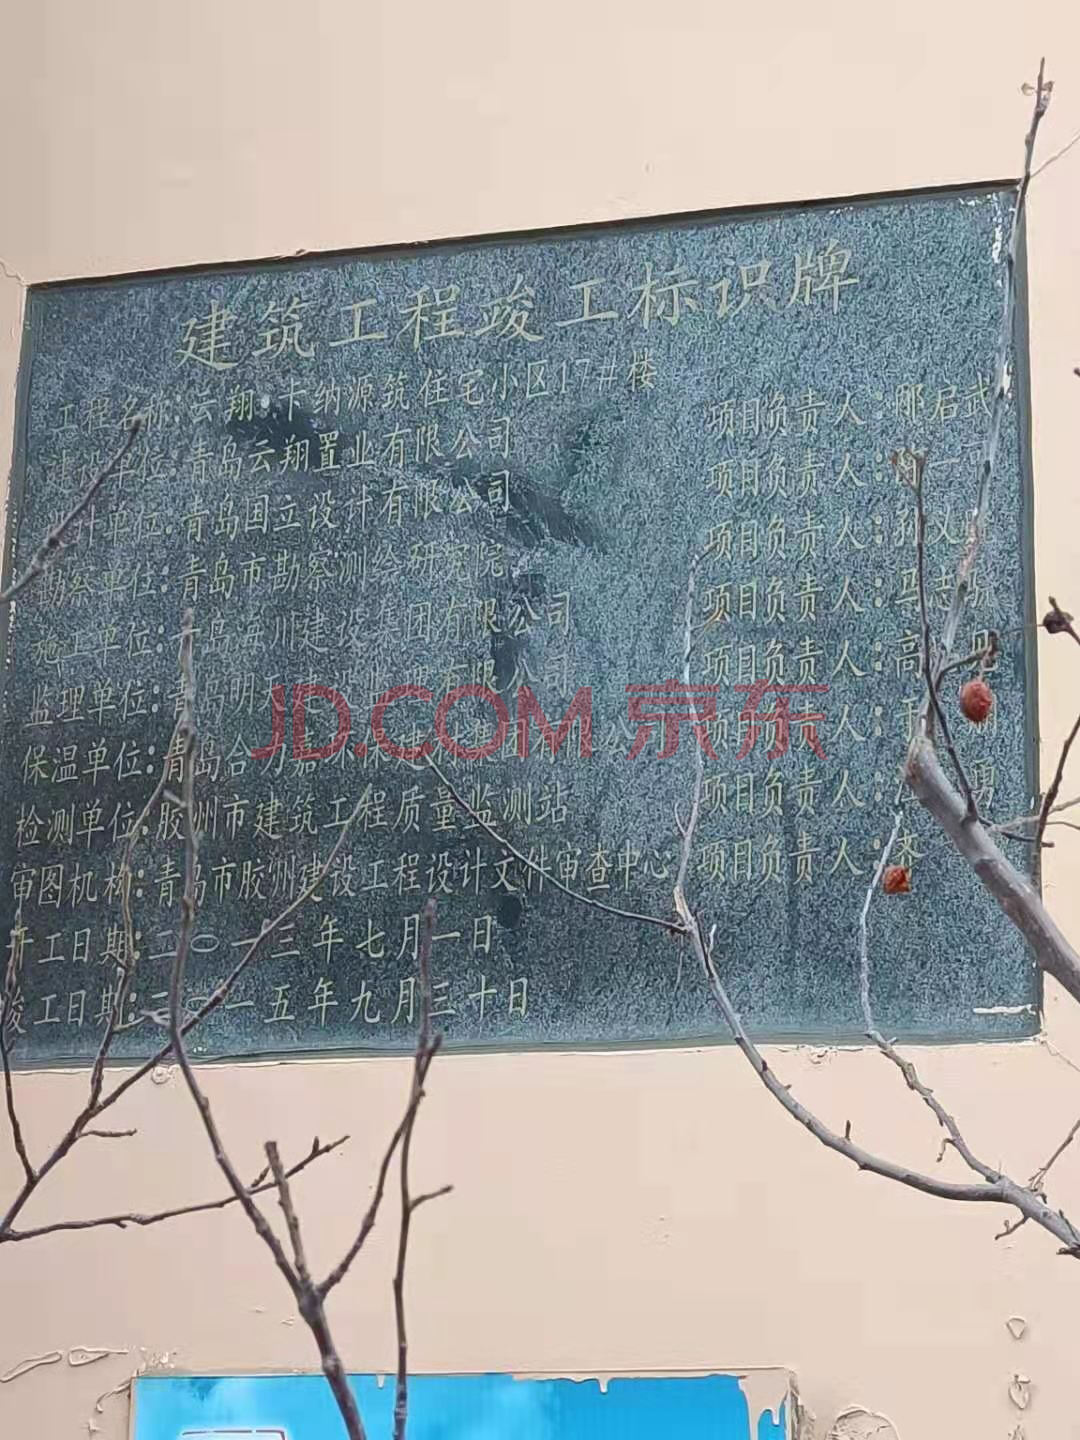 建筑工程竣工标识牌
工程名称:云翔·卡纳源筑住宅小区17#楼
建设单位:青岛云翔置业有限公司 项目负责人:邴启武
设计单位:青岛国立设计有限公司 项目负责人:
勘察单位:青岛市勘察测绘研究院 项目负责人:孙义
施工单位:青岛海川建设集团有限公司 项目负责人:马志
监理单位:青岛明 有限公司 项目负责人:高
保温单位:青岛合力嘉 保 建 集团有 公 项目负责人:
检测单位:胶州市建筑工程质量监测站 项目负责人: 勇
审图机构:青岛市胶州建设工程设计文件审查中心 项目负责人:
开工日期:二〇一三年七月一日
竣工日期:二〇一五年九月三十日
JD.COM 京东